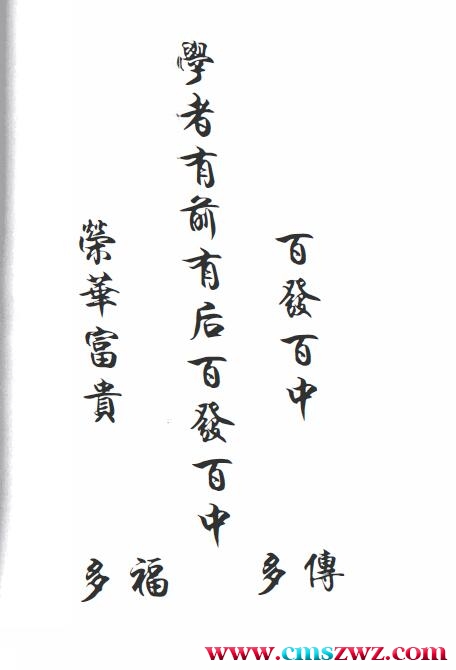 百發百中
學者有前有后百發百中
榮華富貴
傳多
福多
www.cmszwz.com